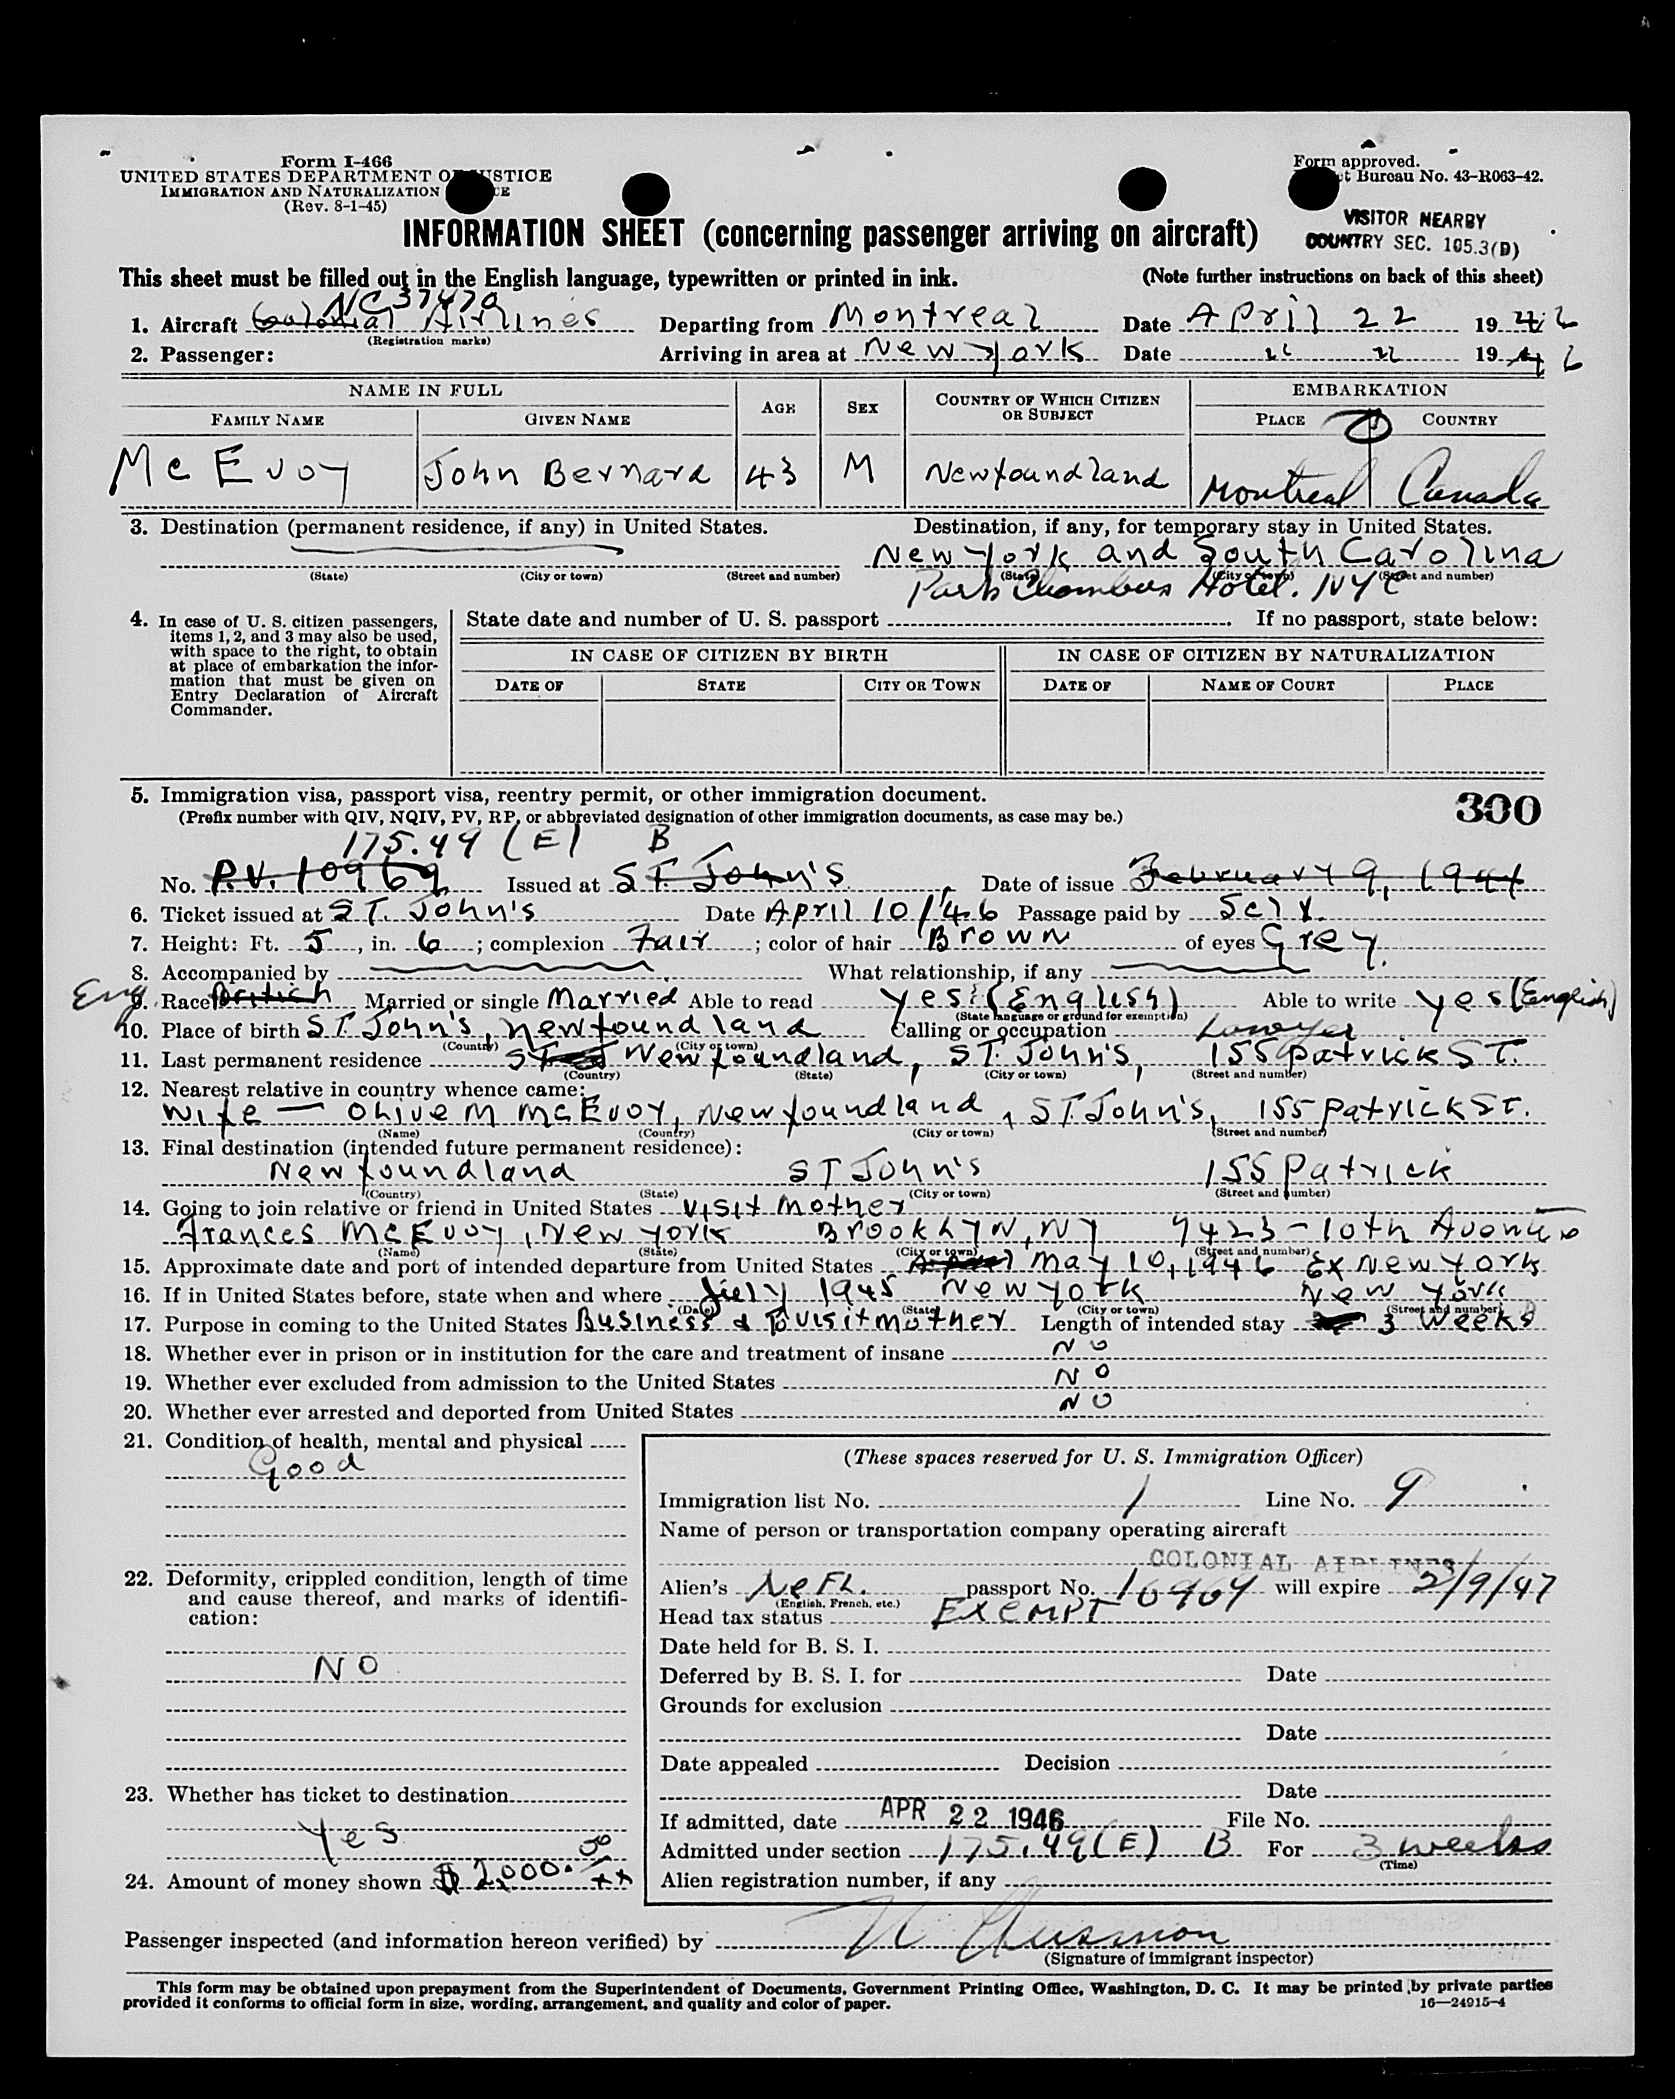 Form I-466
UNITED STATES DEPARTMENT OF JUSTICE
IMMIGRATION AND NATURALIZATION
(Rev. 8-1-45)
Form approved.
Bureau No. 43-R063-42.
VISITOR NEARBY
COUNTRY SEC. 105.3(D)
INFORMATION SHEET (concerning passenger arriving on aircraft)
This sheet must be filled out in the English language, typewritten or printed in ink. (Note further instructions on back of this sheet)
NC 37470
1. Aircraft Colonial Airlines Departing from Montreal Date April 22 1946
(Registration marks)
2. Passenger: Arriving in area at New York Date " " 1946
NAME IN FULL AGE SEX COUNTRY OF WHICH CITIZEN OR SUBJECT EMBARKATION
FAMILY NAME GIVEN NAME PLACE COUNTRY
McEvoy John Bernard 43 M Newfoundland Montreal Canada
3. Destination (permanent residence, if any) in United States. Destination, if any, for temporary stay in United States.
New York and South Carolina
(State) (City or town) (Street and number) (State) (City or town) (Street and number)
Park Chambers Hotel. NYC
4. In case of U. S. citizen passengers, items 1, 2, and 3 may also be used, with space to the right, to obtain at place of embarkation the information that must be given on Entry Declaration of Aircraft Commander.
State date and number of U. S. passport . If no passport, state below:
IN CASE OF CITIZEN BY BIRTH IN CASE OF CITIZEN BY NATURALIZATION
DATE OF STATE CITY OR TOWN DATE OF NAME OF COURT PLACE
5. Immigration visa, passport visa, reentry permit, or other immigration document. 300
(Prefix number with QIV, NQIV, PV, RP, or abbreviated designation of other immigration documents, as case may be.)
175.49 (E) B
No. P.V. 10969 Issued at ST. John's Date of issue February 9, 1944
6. Ticket issued at ST. John's Date April 10/46 Passage paid by Self.
7. Height: Ft. 5, in. 6; complexion Fair; color of hair Brown of eyes Grey.
8. Accompanied by What relationship, if any
Eng
9. Race British Married or single Married Able to read Yes (English) Able to write yes (English)
(State language or ground for exemption)
10. Place of birth ST. John's, Newfoundland Calling or occupation Lawyer
(Country) (City or town)
11. Last permanent residence Newfoundland, ST. John's, 155 Patrick ST.
(Country) (State) (City or town) (Street and number)
12. Nearest relative in country whence came:
Wife — Olive M McEvoy, Newfoundland, ST. John's, 155 Patrick ST.
(Name) (Country) (City or town) (Street and number)
13. Final destination (intended future permanent residence):
Newfoundland ST John's 155 Patrick
(Country) (State) (City or town) (Street and number)
14. Going to join relative or friend in United States visit mother
Frances McEvoy, New York Brooklyn, NY 7423 - 10th Avenue
(Name) (State) (City or town) (Street and number)
15. Approximate date and port of intended departure from United States May 10, 1946 Ex New York
16. If in United States before, state when and where July 1945 New York New York
(Date) (State) (City or town) (Street and number)
17. Purpose in coming to the United States Business & To visit mother Length of intended stay 3 weeks
18. Whether ever in prison or in institution for the care and treatment of insane No
19. Whether ever excluded from admission to the United States No
20. Whether ever arrested and deported from United States No
21. Condition of health, mental and physical
Good
22. Deformity, crippled condition, length of time and cause thereof, and marks of identification:
NO
23. Whether has ticket to destination
Yes
24. Amount of money shown $2,000.00/xx
(These spaces reserved for U. S. Immigration Officer)
Immigration list No. 1 Line No. 9
Name of person or transportation company operating aircraft
COLONIAL AIRLINES
Alien's NeFL. passport No. 10969 will expire 2/9/47
(English, French, etc.)
Head tax status EXEMPT
Date held for B. S. I.
Deferred by B. S. I. for Date
Grounds for exclusion
Date
Date appealed Decision
Date
If admitted, date APR 22 1946 File No.
Admitted under section 175.49(E) B For 3 weeks
(Time)
Alien registration number, if any
Passenger inspected (and information hereon verified) by
(Signature of immigrant inspector)
This form may be obtained upon prepayment from the Superintendent of Documents, Government Printing Office, Washington, D. C. It may be printed by private parties
provided it conforms to official form in size, wording, arrangement, and quality and color of paper. 16—24915-4